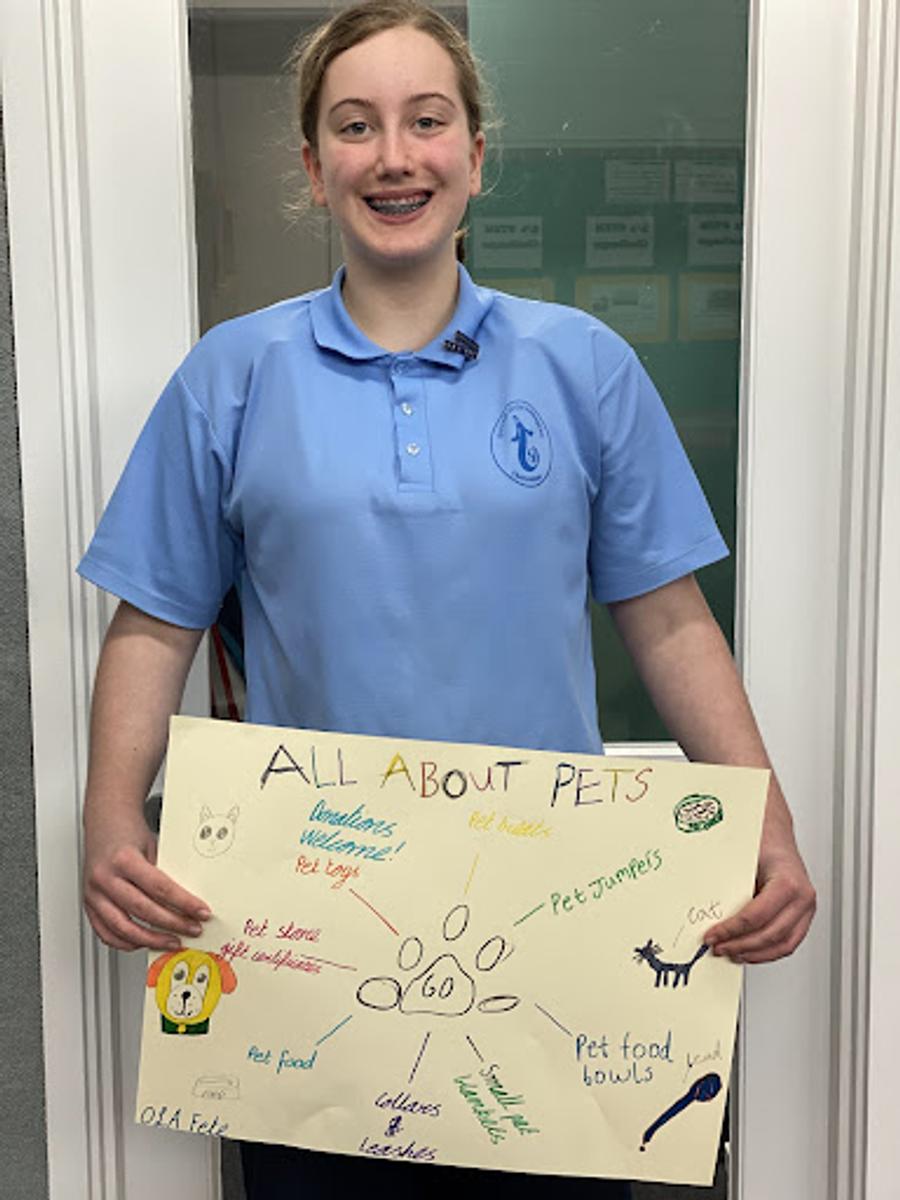 ALL ABOUT PETS
Donations
Welcome!
Pet toys
Pet beds
Pet Jumpers
Pet store
gift certificates
60
cat
Pet food
Pet food
bowls
Small pet
blankets
Collars
&
Leashes
OLA Fete